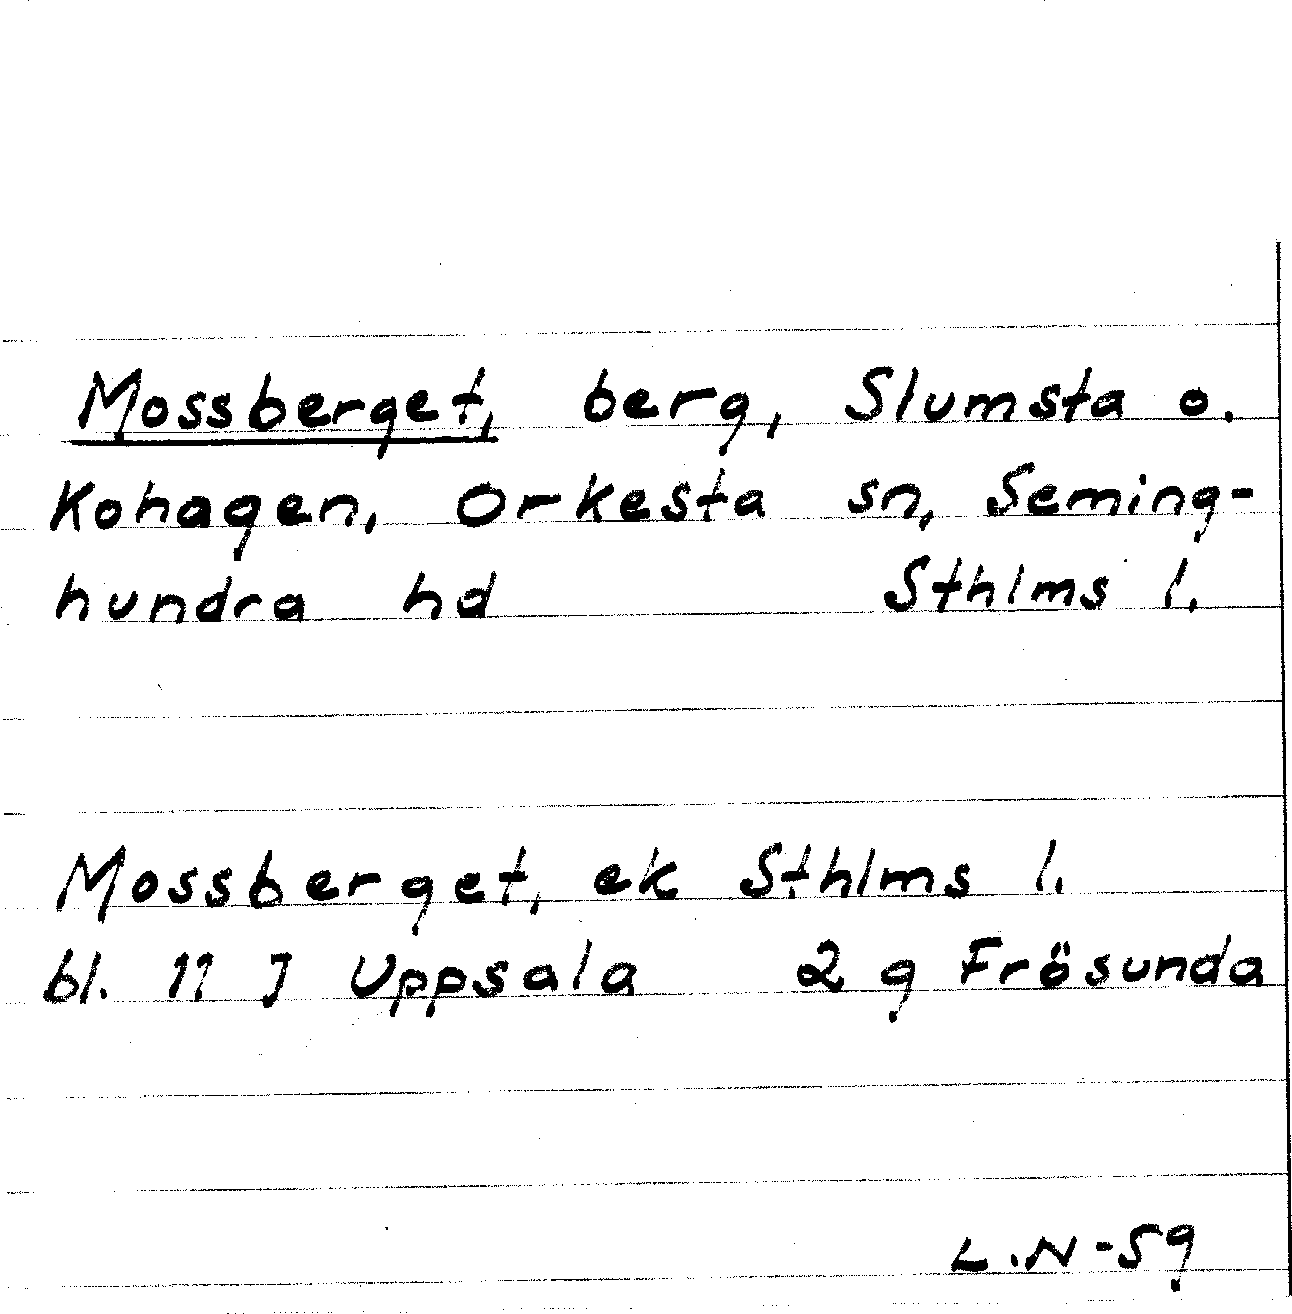 Mossberget, berg, Slumsta o.
Kohagen, Orkesta sn, Seming-
hundra hd Sthlms l.
Mossberget, ek Sthlms l.
bl. 11 J Uppsala 2 g Frösunda
L.N-59